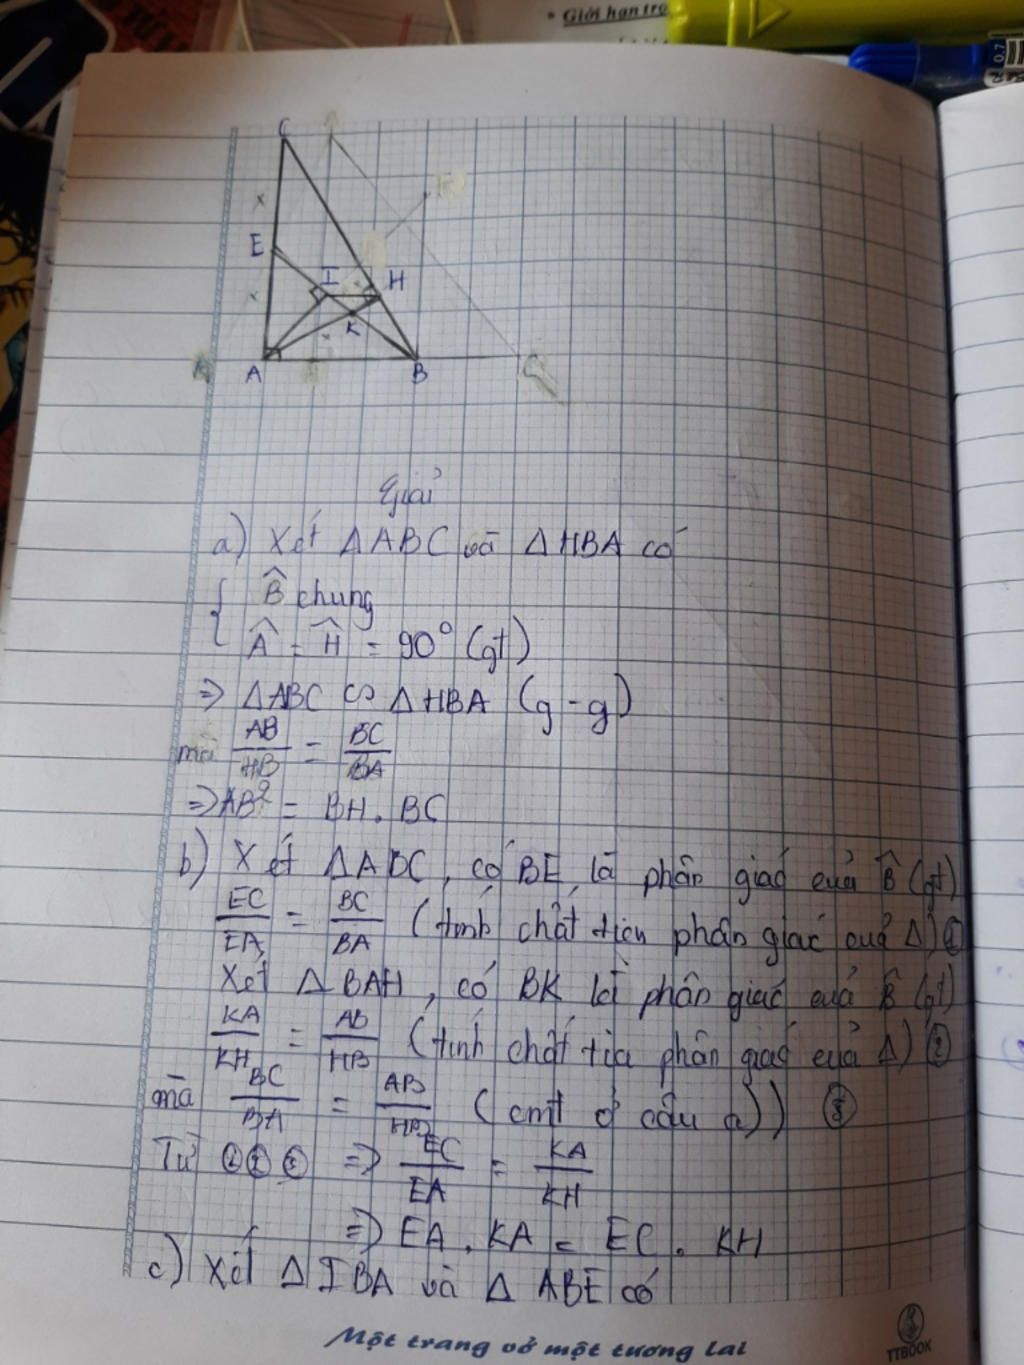 • Giới hạn tro
0.7
C
E
I
H
K
A
B
C
Giải
a) Xét ΔABC và ΔHBA có
{ B̂ chung
Â = Ĥ = 90° (gt)
=> ΔABC ∽ ΔHBA (g-g)
AB/HB = BC/BA
=> AB² = BH. BC
b) Xét ΔABC, có BE là phân giác của B̂ (gt)
EC/EA = BC/BA (tính chất tia phân giác của Δ) ①
Xét ΔBAH, có BK là phân giác của B̂ (gt)
KA/KH = AB/HB (tính chất tia phân giác của Δ) ②
mà BC/BA = AB/HB (cmt ở câu a)) ③
Từ ①②③ => EC/EA = KA/KH
=> EA. KA = EC. KH
c) Xét ΔIBA và ΔABE có
Một trang vở một tương lai
TTBOOK